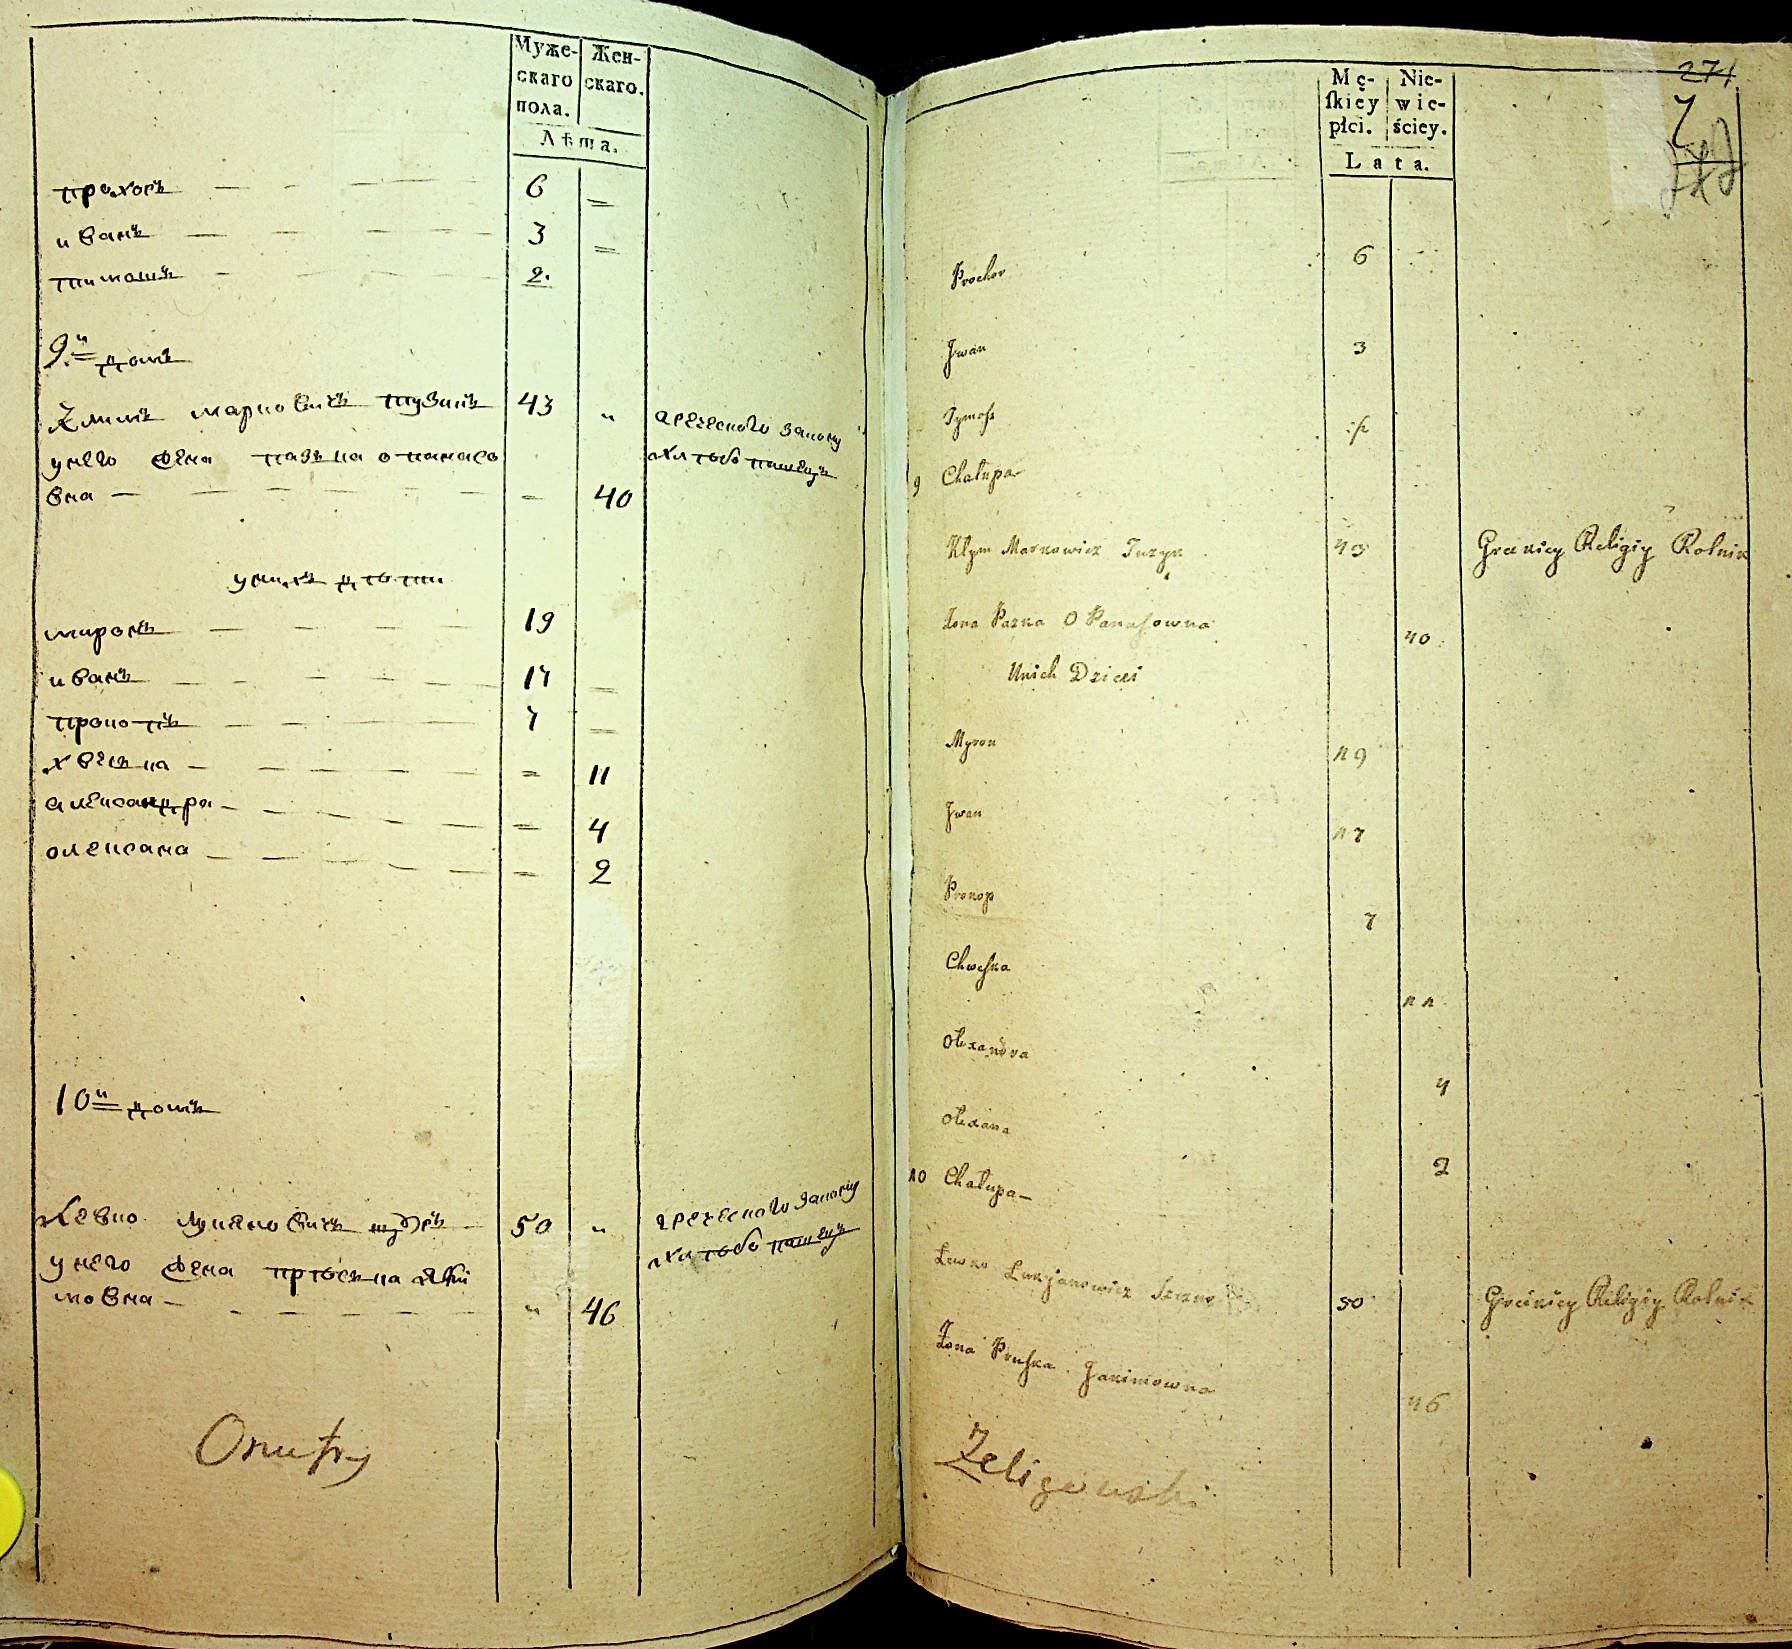 Муже-
скаго
пола.
Жен-
скаго.
Лѣта.
прохоръ 6
иванъ 3
тимошъ 2.
9.й домъ
климъ марковичъ тузикъ 43 греческого закону
унего жена пазька опанасо хлѣбопашецъ
вна 40
унихъ дѣти
миронъ 19
иванъ 17
прокопъ 7
хвеська 11
александра 4
олексана 2
10й домъ
левко лукяновичъ 50 греческого закону
унего жена пріська яки хлѣбопашецъ
мовна 46
Mę-
skiey
płci.
Nie-
wie-
ściey.
Lata.
271
7
Prochor 6
Jwan 3
Tymosz
9 Chałupa
Kłym Markowicz Tuzyk 43 Greckiey Religiy Rolnik
Żona Pazka OPanasowna 40
Unich Dzieci
Myron 19
Jwan 17
Prokop 7
Chweska 11
Olexandra 4
Olexana 2
10 Chałupa
Lewko Lukjanowicz 50 Greckiey Religiy Rolnik
Żona Pruska Jakimowna 46
Żeligowski